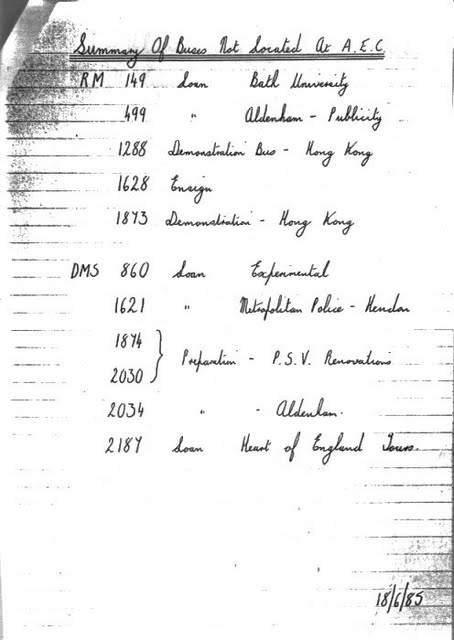 Summary Of Buses Not Located At A.E.C.
RM 149 Loan Bath University
499 " Aldenham - Publicity
1288 Demonstration Bus - Hong Kong
1628 Ensign
1873 Demonstration - Hong Kong
DMS 860 Loan Experimental
1621 " Metropolitan Police - Hendon
1874
} Preparation - P.S.V. Renovations
2030
2034 " - Aldenham.
2187 Loan Heart of England Tours.
18/6/85